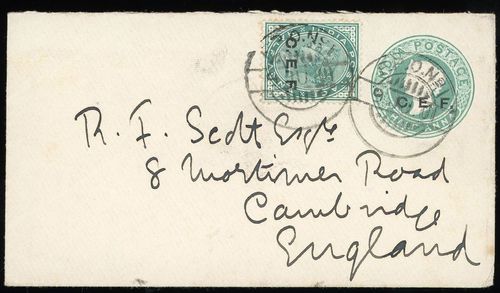 INDIA POSTAGE
C.E.F.
C.E.F.
HALF ANNA
R. F. Scott Esqre
8 Mortimer Road
Cambridge
England